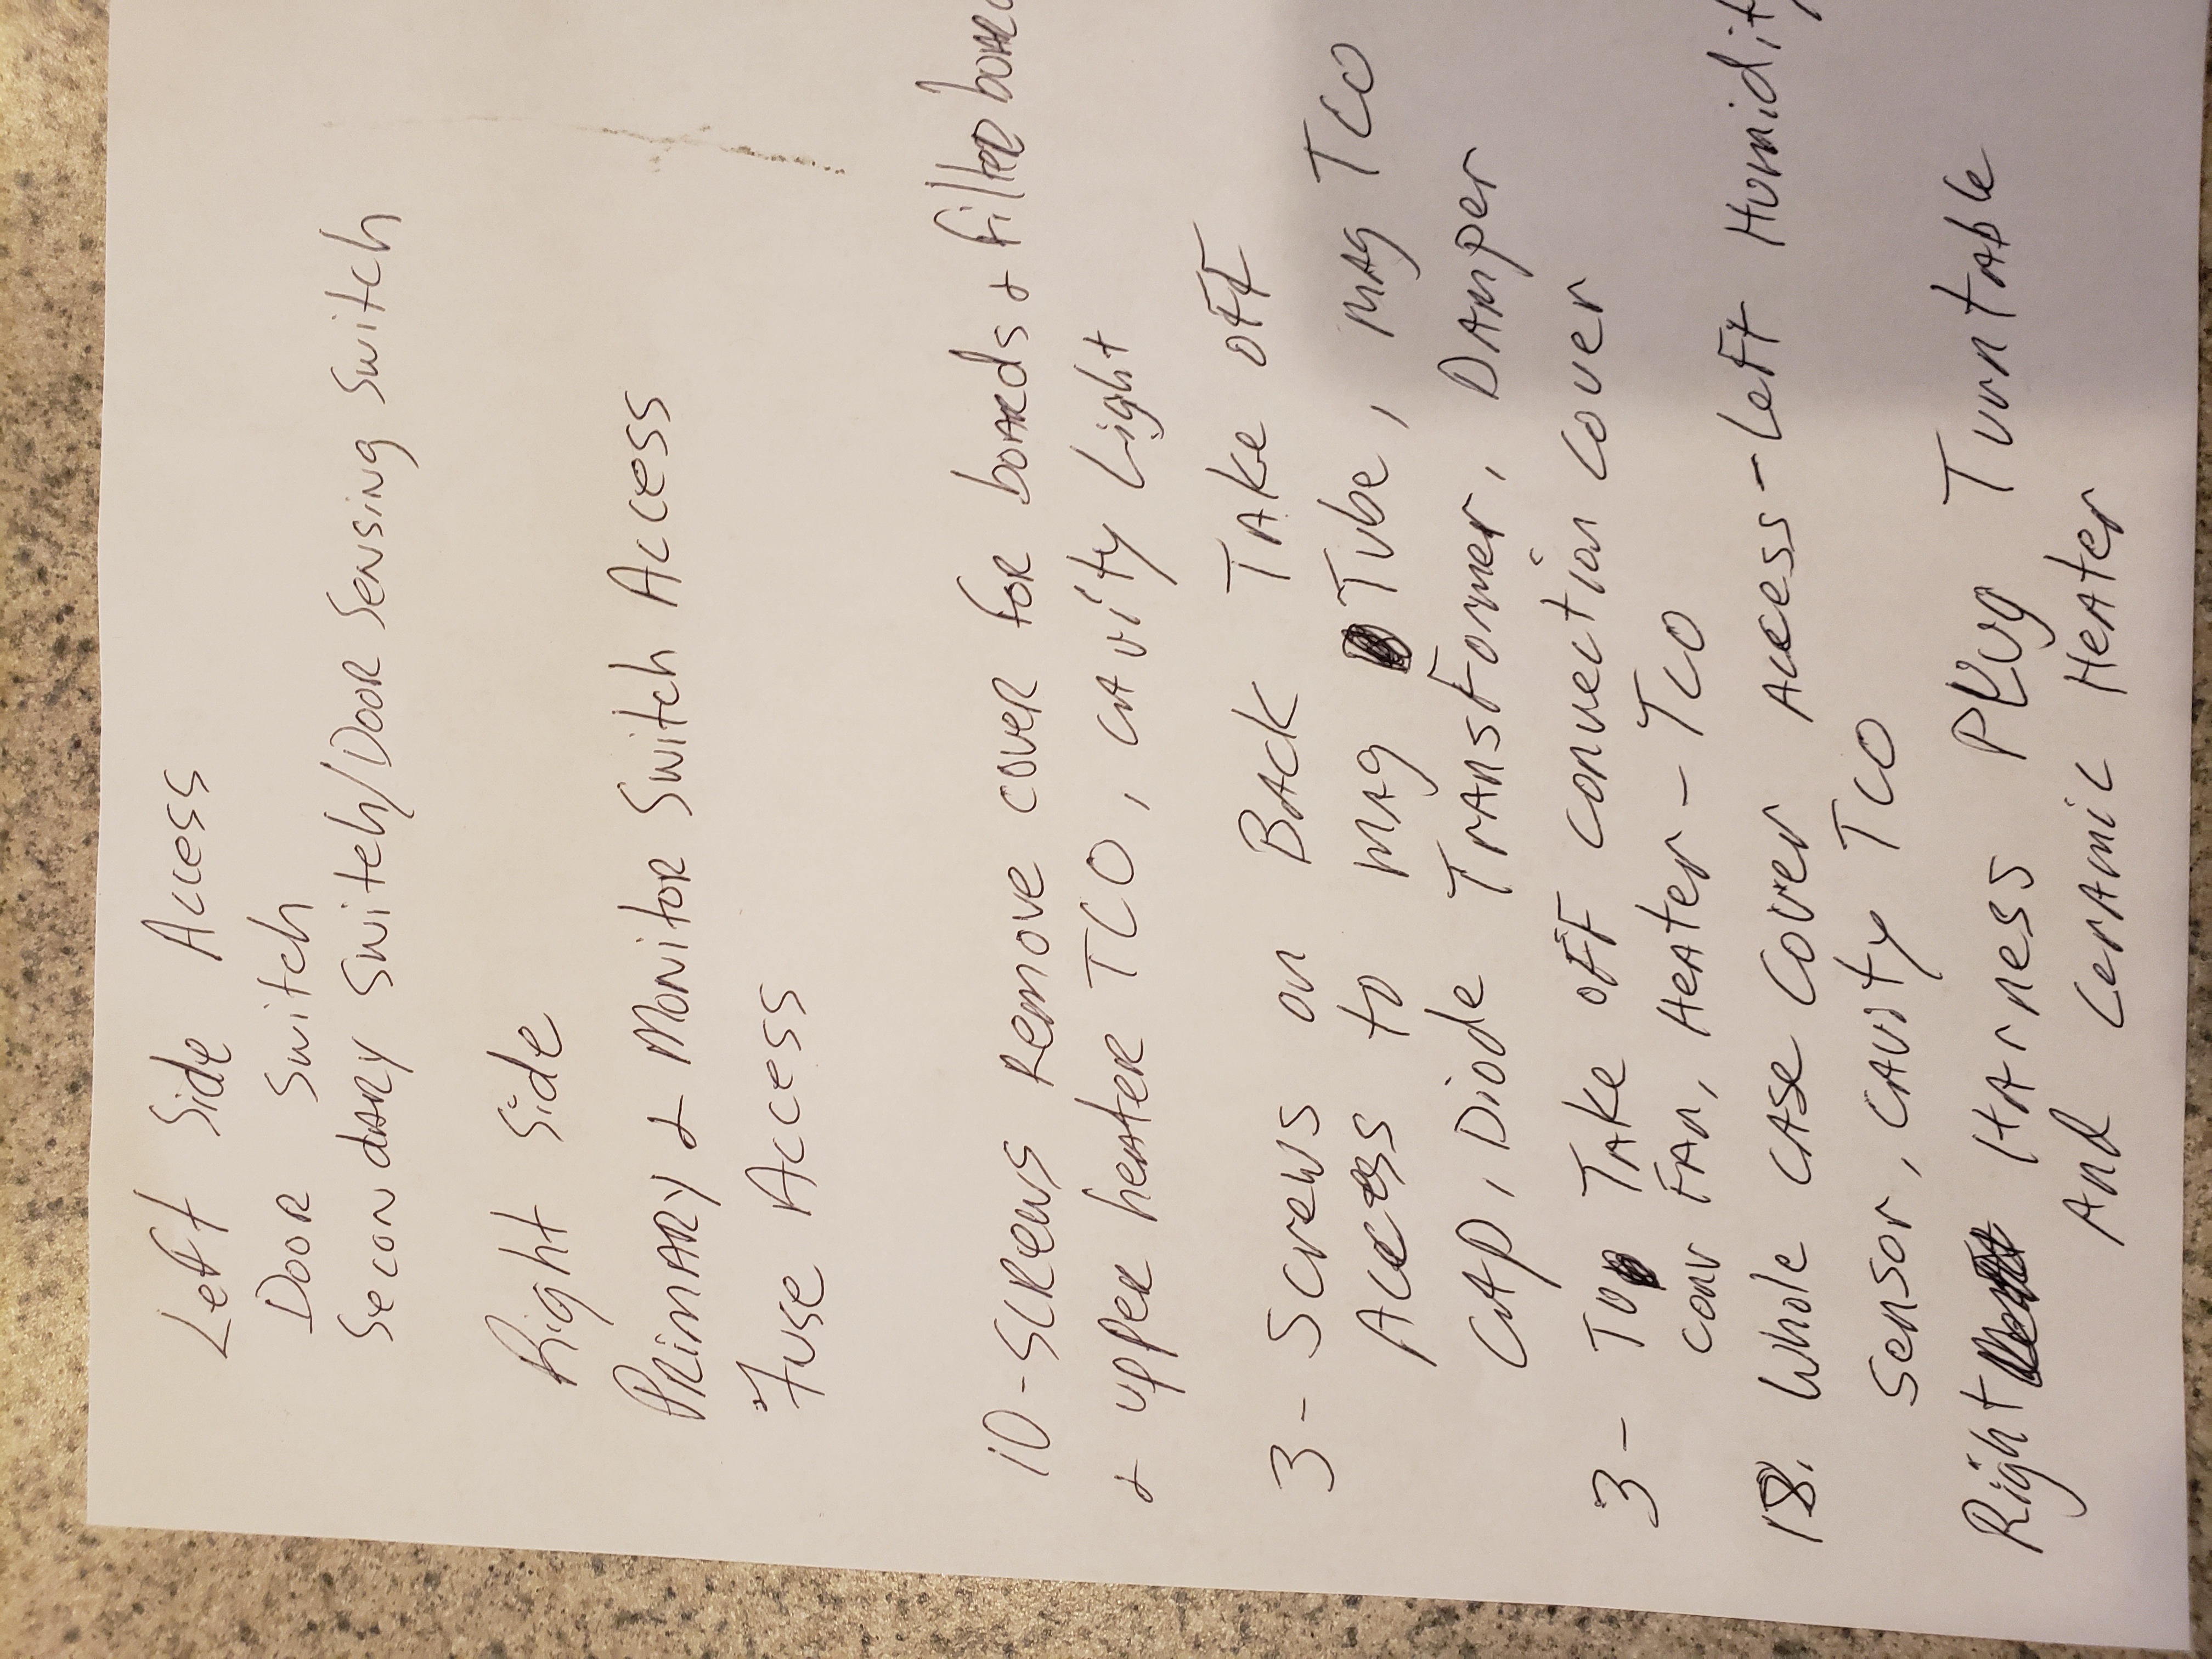 Left Side Access
Door Switch
Secondary Switch/Door Sensing Switch
Right Side
Primary & Monitor Switch Access
Fuse Access
10-Screws Remove cover for boards & filter board
& upper heater TCO, cavity Light
3- Screws on Back Take off
Access to mag Tube, mag TCO
CAP, Diode Transformer, Damper
3- Top Take off convection cover
conv Fan, Heater-TCO
18. Whole case Cover Access-Left Humidity
Sensor, cavity TCO
Right Harness Plug Turntable
And Ceramic Heater